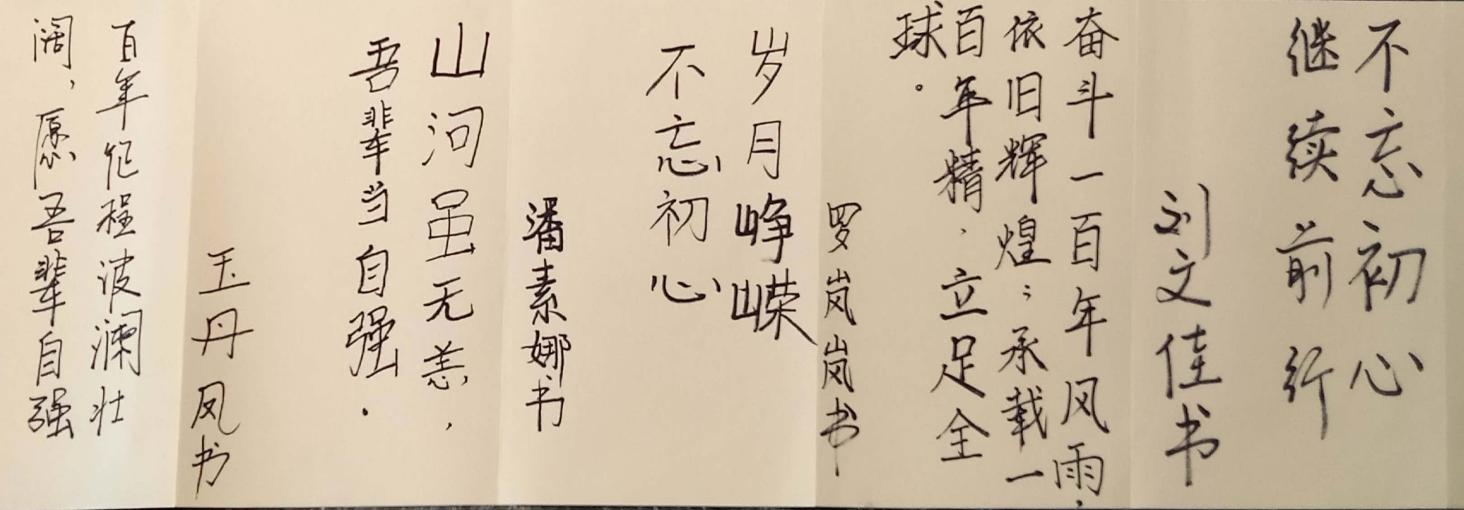 不忘初心
继续前行
刘文佳书
奋斗一百年风雨，
依旧辉煌；承载一
百年精，立足全
球。
罗岚岚书
岁月峥嵘
不忘初心
潘素娜书
山河虽无恙，
吾辈当自强。
玉丹凤书
百年征程波澜壮
阔，愿吾辈自强